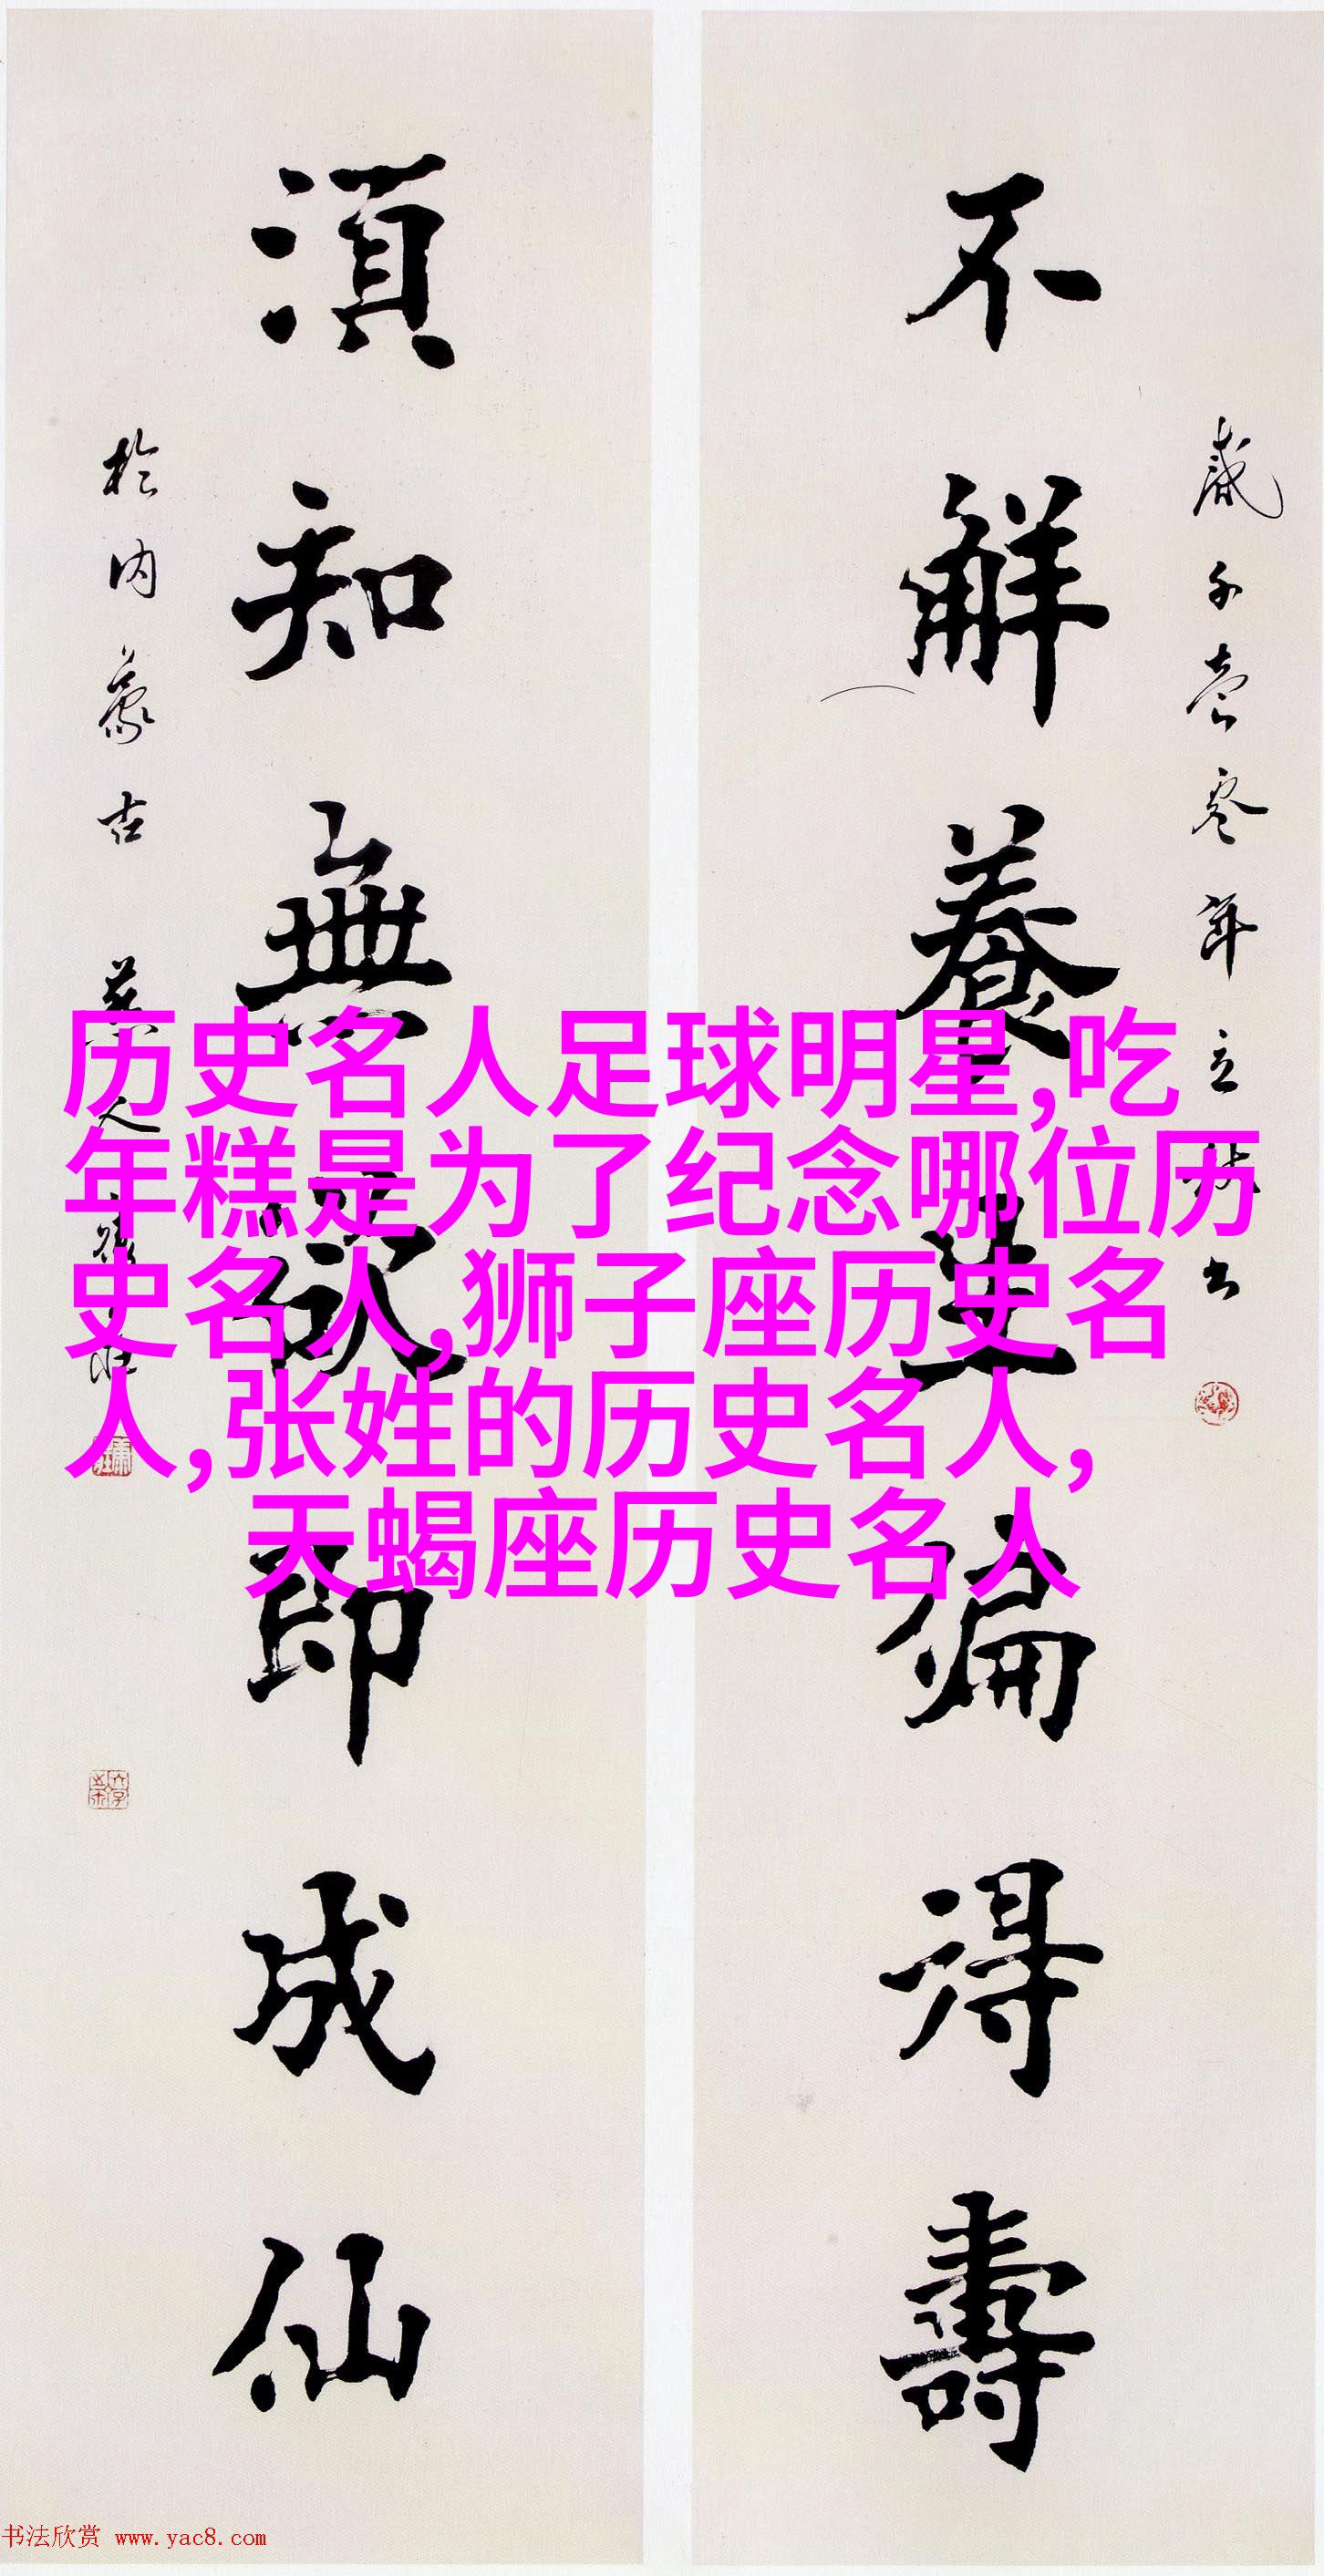 不解養生偏得壽
須知無欲即成仙
於内蒙古
历史名人足球明星,吃
年糕是为了纪念哪位历
史名人,狮子座历史名
人,张姓的历史名人,
天蝎座历史名人
书法欣赏 www.yac8.com